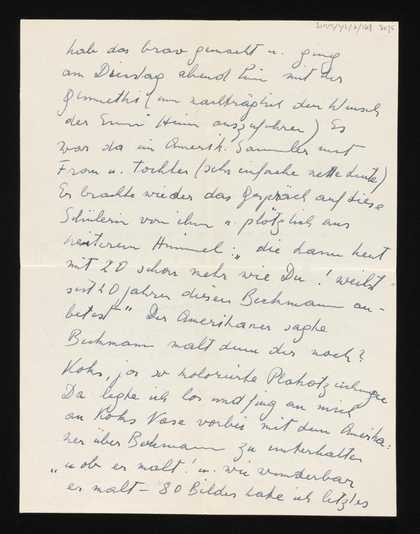 habe das brav gemacht u. ging
am Dienstag abend hin mit der
(um nachträglich den Wunsch
der Emmi Heim auszuführen) Es
war da ein Amerik. Sammler mit
Frau u. Tochter (sehr einfache nette Leute)
Er brachte wieder das Gespräch auf diese
Schülerin von ihm u. plötzlich aus
heiterem Himmel: „ die kann heut
mit 20 schon mehr wie Du! weil
seit 20 Jahren diesen Beckmann an-
betest" Der Amerikaner sagte
Beckmann malt denn der noch?
Koko, ja, so kolorierte Plakatzeichnungen
Da legte ich los und fing an mich
an Kokos Nase vorbei mit dem Amerika-
ner über Beckmann zu unterhalten
„u. ob er malt! u. wie wunderbar
er malt – 80 Bilder habe ich letztes